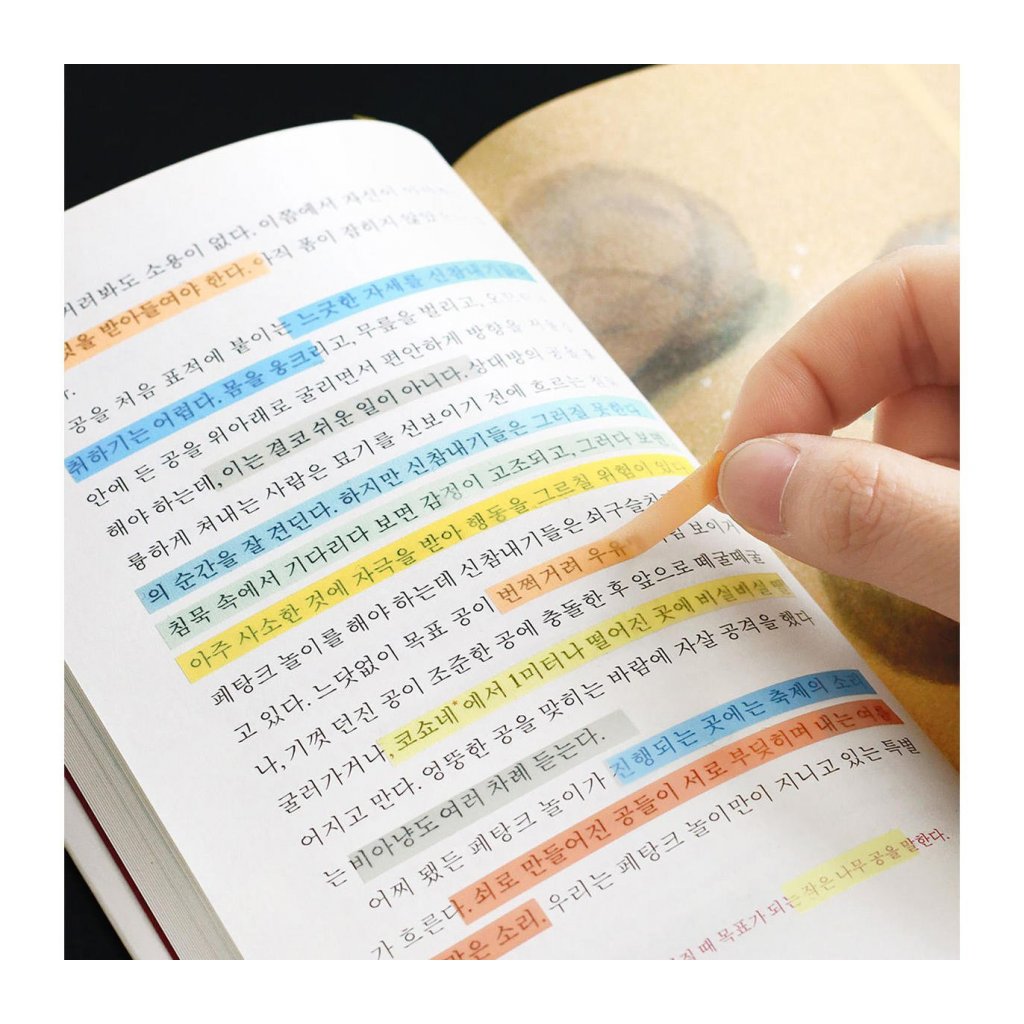 겨려봐도 소용이 없다. 이쯤에서 자신이
것을 받아들여야 한다. 아직 폼이 잡히지 않았
다.
공을 처음 표적에 붙이는 느긋한 자세를 신참내기들이
취하기는 어렵다. 몸을 웅크리고, 무릎을 벌리고,
안에 든 공을 위아래로 굴리면서 편안하게 방향을
해야 하는데, 이는 결코 쉬운 일이 아니다. 상대방의 공들을
름하게 쳐내는 사람은 묘기를 선보이기 전에 흐르는
의 순간을 잘 견딘다. 하지만 신참내기들은 그러질 못한다.
침묵 속에서 기다리다 보면 감정이 고조되고, 그러다 보면
아주 사소한 것에 자극을 받아 행동을 그르칠 위험이 있다.
페탕크 놀이를 해야 하는데 신참내기들은 쇠구슬치기
고 있다. 느닷없이 목표 공이 번쩍거려 우유 보이거
나, 기껏 던진 공이 조준한 공에 충돌한 후 앞으로 떼굴떼굴
굴러가거나, 코쇼네*에서 1미터나 떨어진 곳에 비실비실
어지고 만다. 엉뚱한 공을 맞히는 바람에 자살 공격을 했다
는 비아냥도 여러 차례 듣는다.
어찌 됐든 페탕크 놀이가 진행되는 곳에는 축제의 소리
가 흐른다. 쇠로 만들어진 공들이 서로 부딪히며 내는 여름
같은 소리. 우리는 페탕크 놀이만이 지니고 있는 특별
때 목표가 되는 작은 나무 공을 말한다.